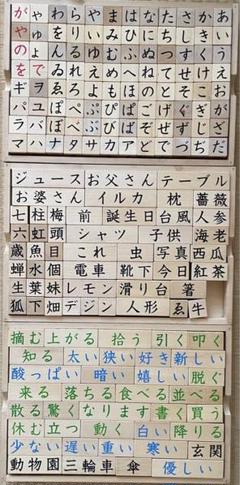 がゃわらやまはなたさかあ
やゅをりいみひにちしきい
のょんるゆむふぬつすくう
をでゐれえめへねてせけえ
ギヲゑろよもほのとそこお
パユぽぺぷぴぱごげぐぎが
ラバぼべぶびばぞぜずじざ
マハナタサカアどでづぢだ
ジュース お父さん テーブル
お婆さん イルカ 枕 薔薇
七 柱 梅 前 誕生日 台風 人参
六 虹 頭 シャツ 子供 海老
歳 魚 目 これ 虫 写真 西瓜
蝉 水 個 電車 靴下 今日 紅茶
生 葉 妹 レモン 滑り台 箸
狐 下 畑 デジン 人形 ゑ 牛
摘む 上がる 拾う 引く 叩く
知る 太い 狭い 好き 新しい
酸っぱい 暗い 嬉しい 脱ぐ
来る 落ちる 食べる 並べる
散る 驚く なります 書く 買う
休む 立つ 動く 白い 降りる
少ない 遅い 重い 寒い 玄関
動物園 三輪車 傘 優しい